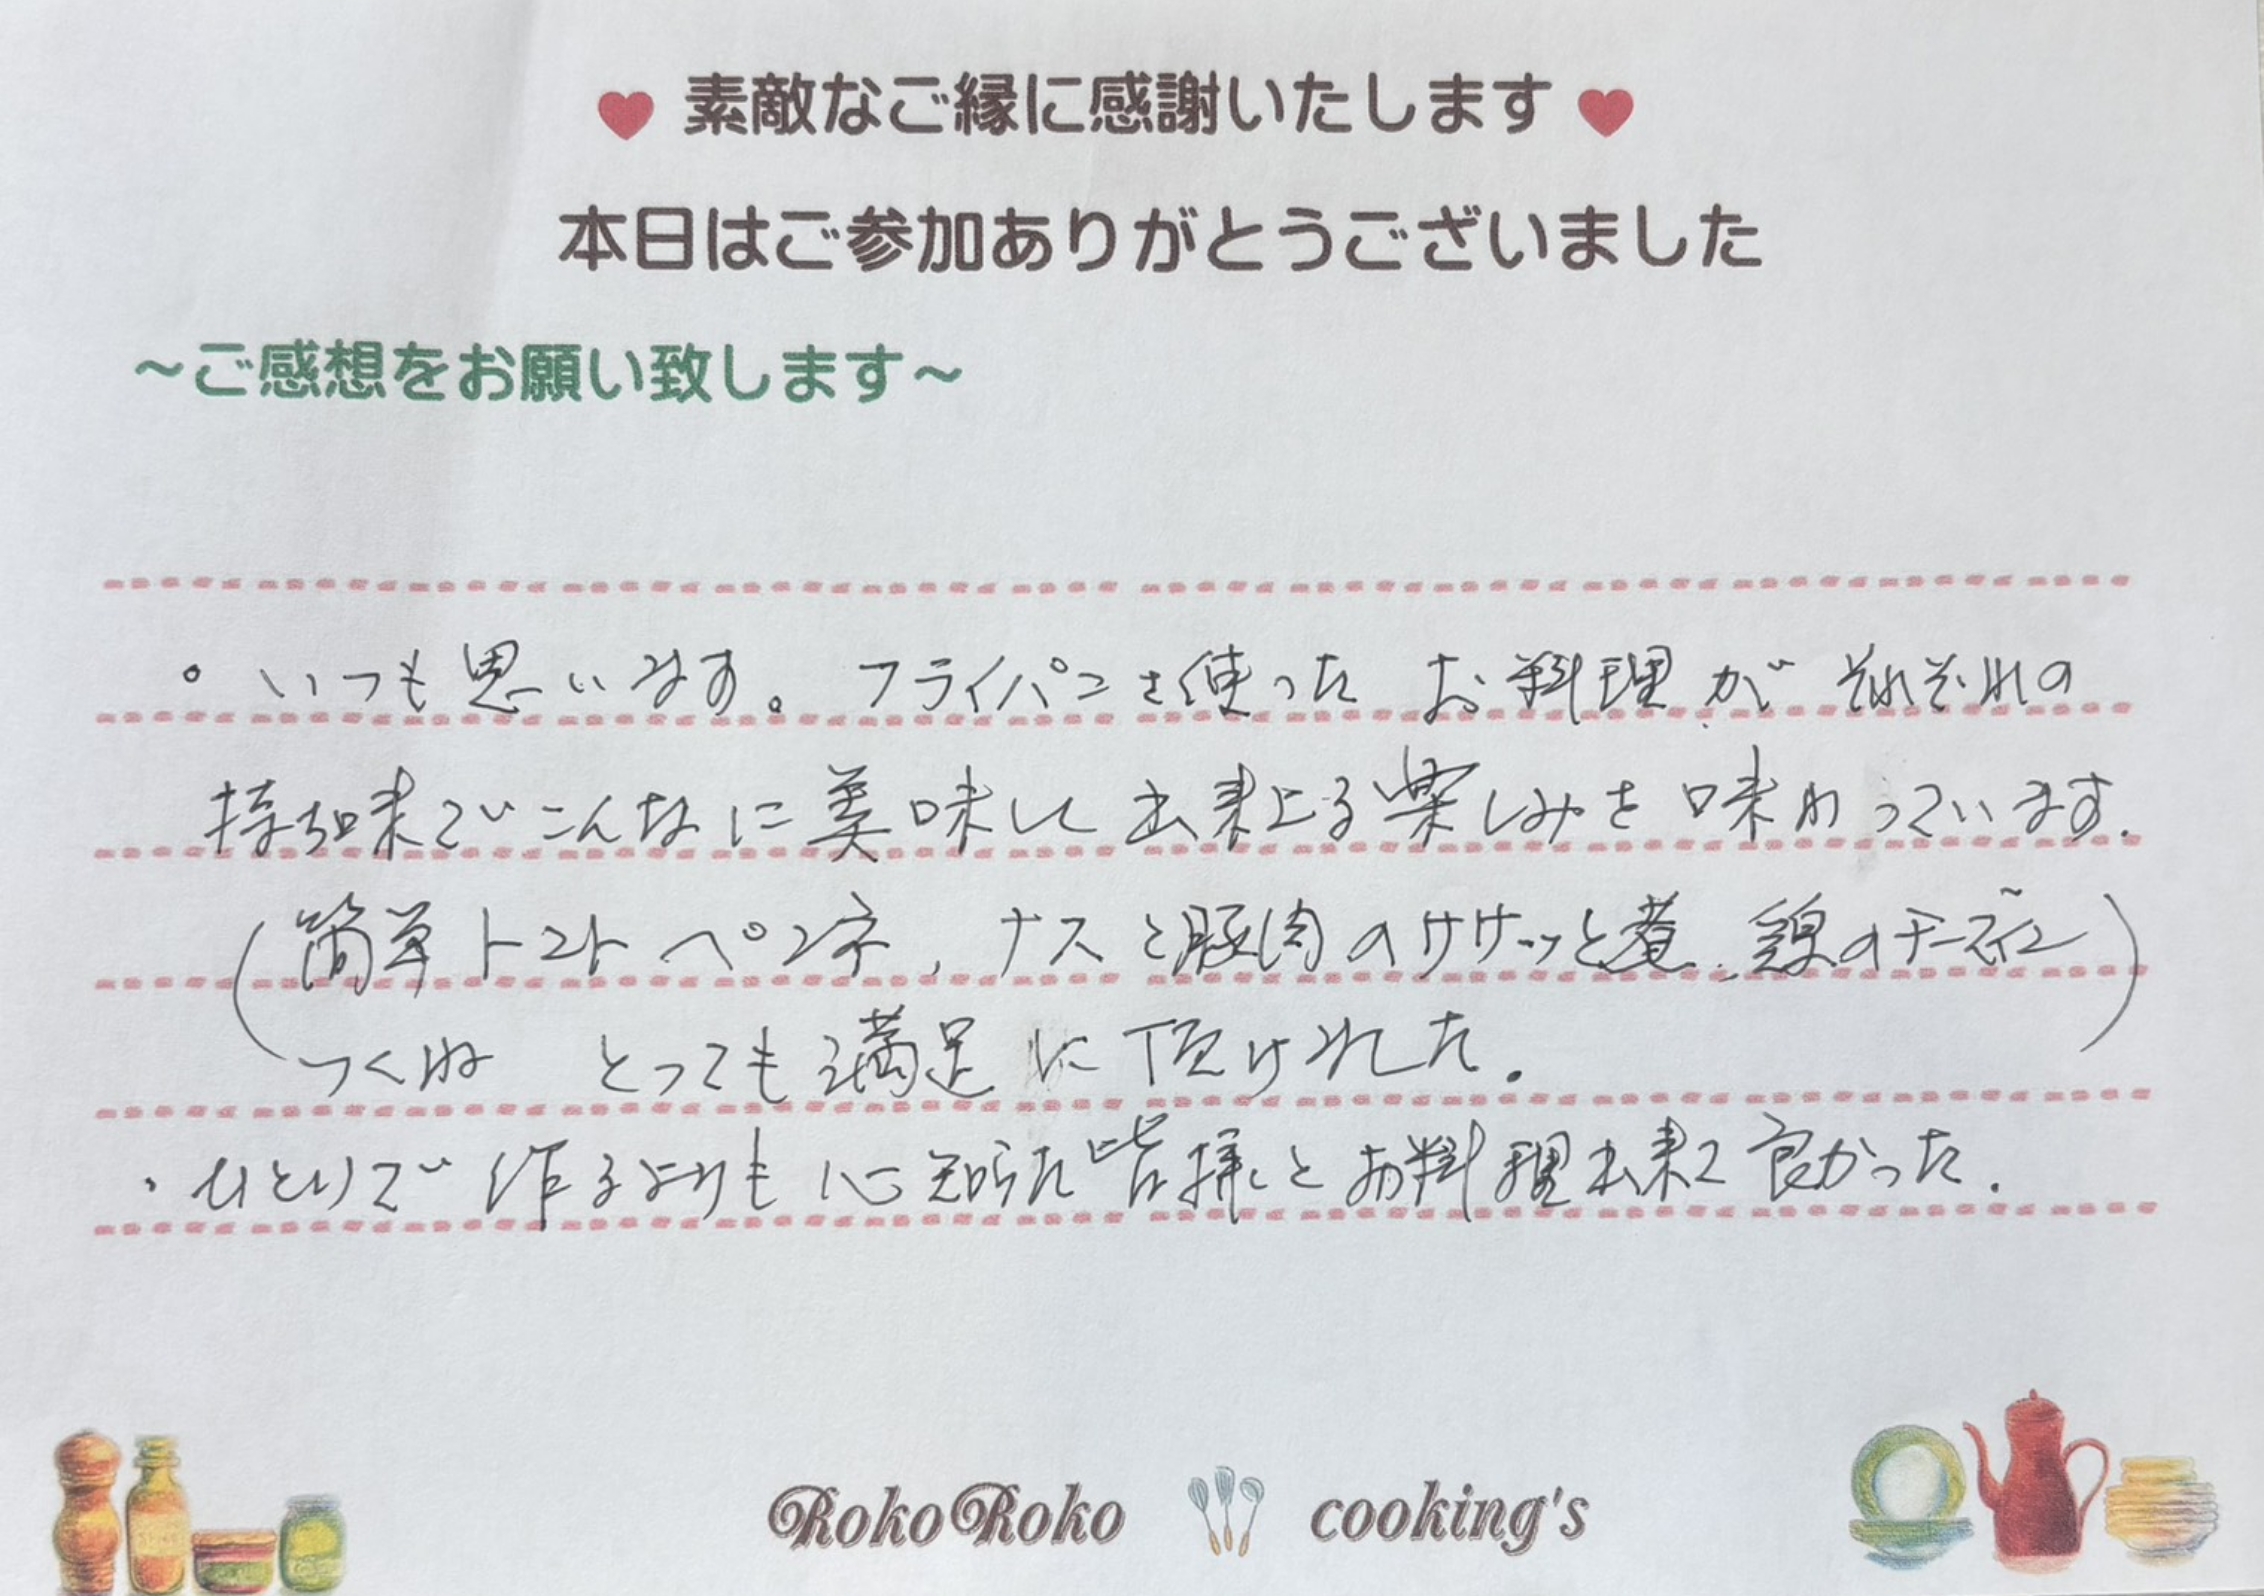 素敵なご縁に感謝いたします
本日はご参加ありがとうございました
~ご感想をお願い致します~
。いつも思います。フライパンを使ったお料理がそれぞれの
持ち味でこんなに美味しく出来上る楽しみを味わっています.
(簡単トマトペンネ, ナスと豚肉のササッと煮, 鶏のチーズイン)
つくね とっても満足に頂けれた.
・ひとりで作るよりも心知れた皆様とお料理出来て良かった.
RokoRoko cooking's